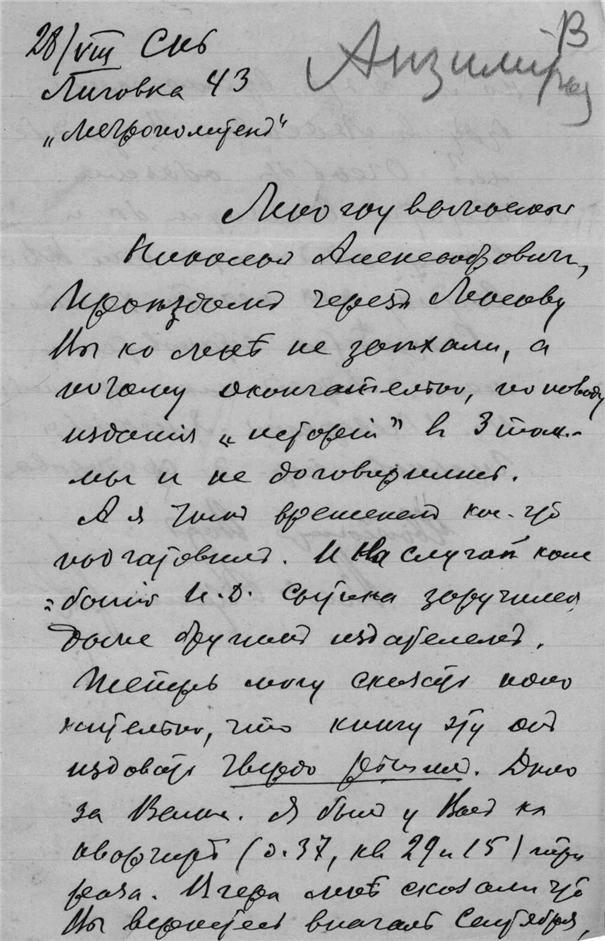 28/VIII СПб
Лиговка 43
„Метрополитен“
В
Анзимиров
Многоуважаемый
Николай Александрович,
Проѣздомъ черезъ Москву
Вы ко мнѣ не заѣхали, а
потому окончательно, по поводу
изданія „исторіи“ въ 3 том.
мы и не договорились.
А я тѣмъ временемъ кое-что
подготовилъ. И на случай коле
=баній И.Д. Сытина заручился
даже другимъ издателемъ.
Теперь могу сказать поло
жительно, что книгу эту онъ
издавать твердо рѣшилъ. Дѣло
за Вами. Я былъ у Васъ на
квартирѣ (д. 37, кв 29 и 15) три
раза. Вчера мнѣ сказали что
Вы вернетесь вначалѣ Сентября,